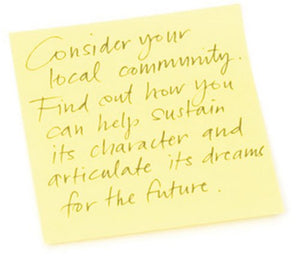 Consider your
local community.
Find out how you
can help sustain
its character and
articulate its dreams
for the future.